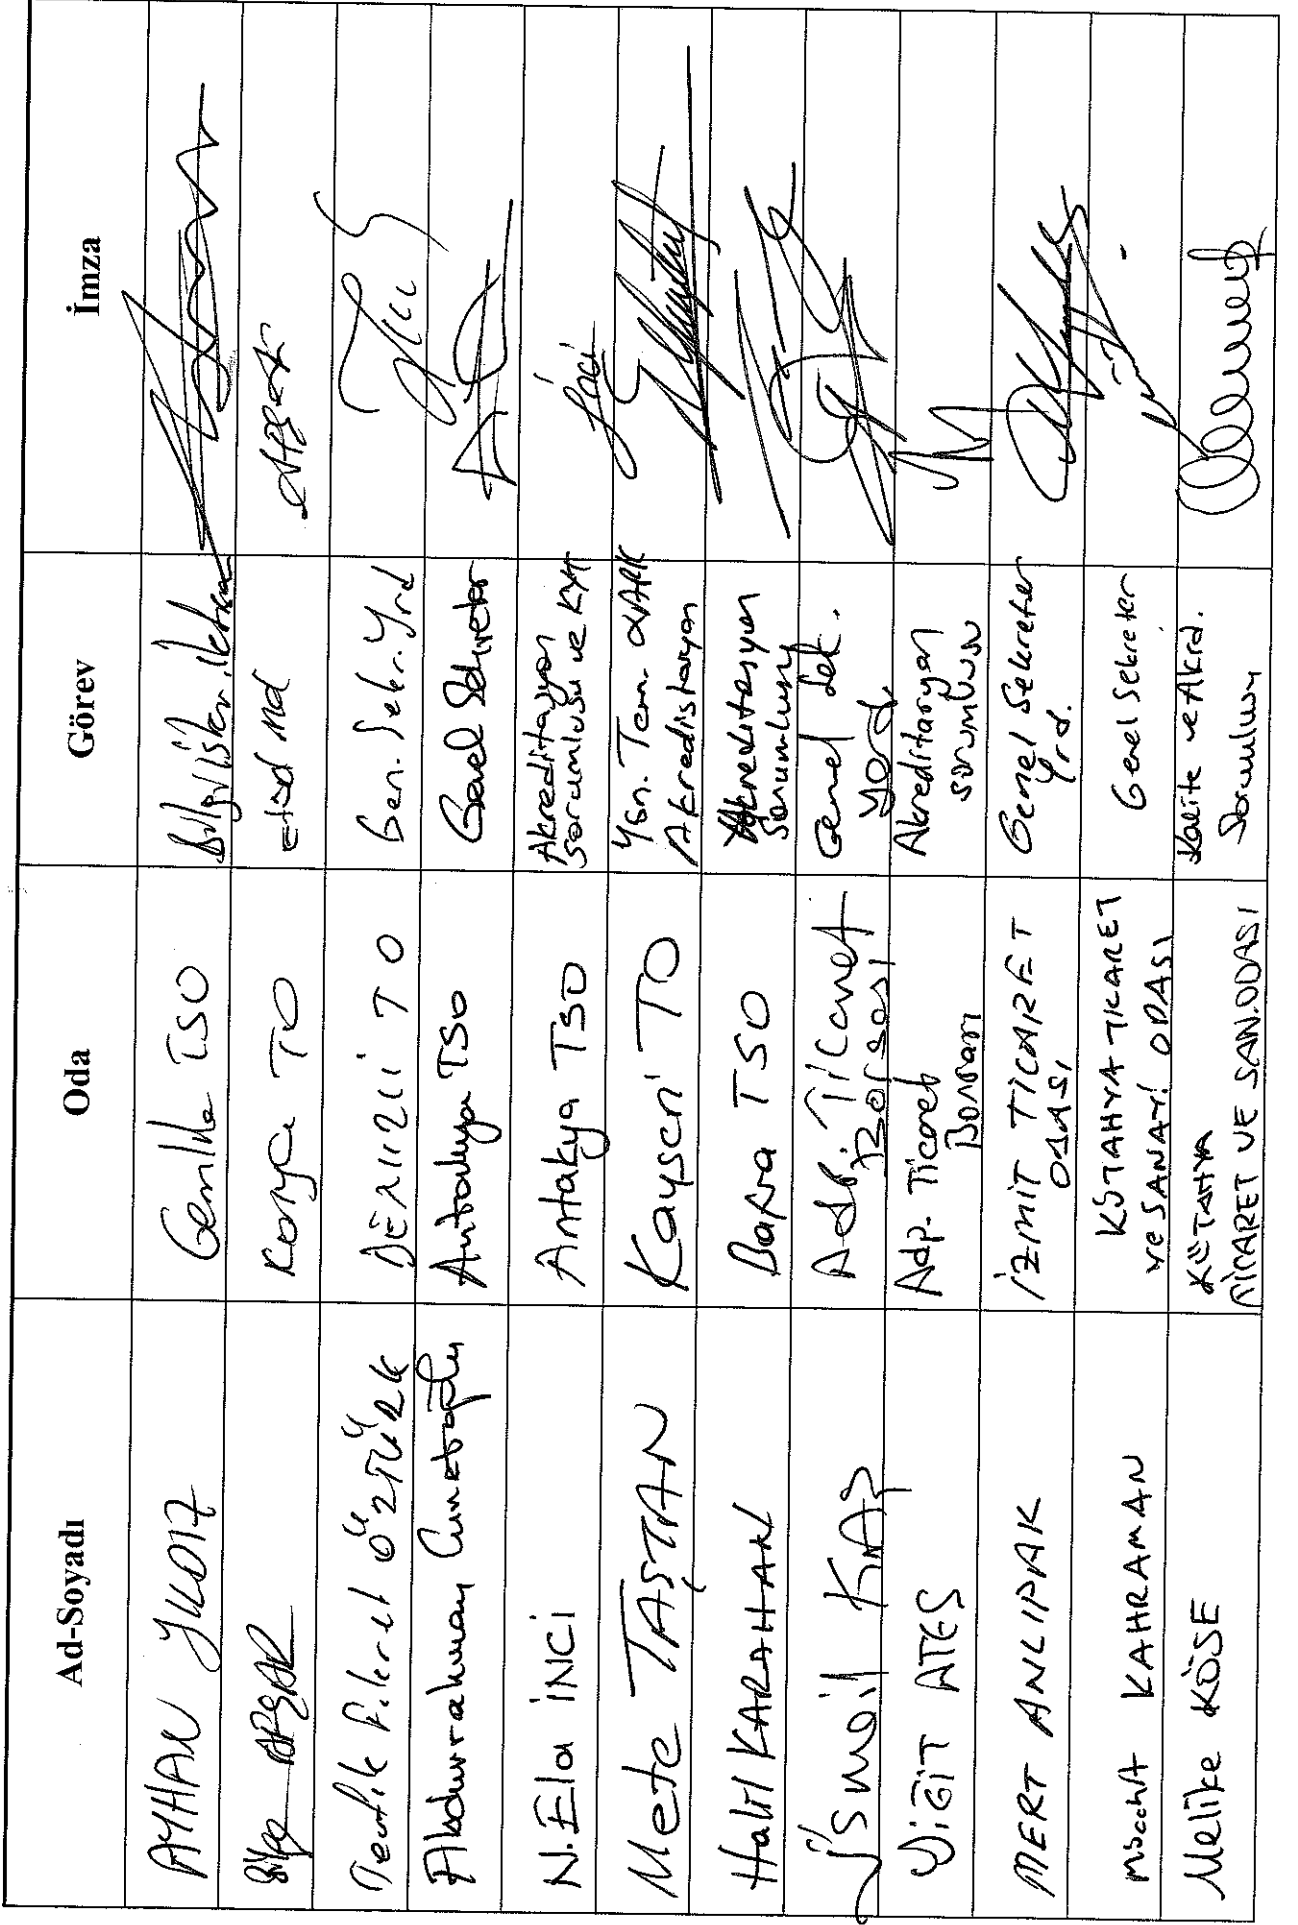 Ad-Soyadı Oda Görev İmza
AYHAN Gemlik TSO Bilgi işlem
APSAR Konya TO etüd Md
Tevfik Fikret ÖZTÜRK DENİZLİ TO Gen. Sekr. Yrd
Abdurrahman Antakya TSO Genel Sekreter
N. Ela İNCİ Antakya TSO Akreditasyon
sorumlusu ve KYT İnci
Mete TAŞTAN Kayseri TO Ysn. Tem.
Akreditasyon
Halil KARAHAN Bafra TSO Akreditasyon
Sorumlusu
İsmail KAP Adp. Ticaret
Borsası Genel Sek.
Yard.
YiĞiT ATEŞ Adp. Ticaret
Borsası Akreditasyon
sorumlusu
MERT ANLIPAK İZMİT TİCARET
ODASI Genel Sekreter
Yrd.
KAHRAMAN KÜTAHYA TİCARET
ve SANAYİ ODASI Genel Sekreter
Melike KÖSE KÜTAHYA
TİCARET VE SAN.ODASI Kalite ve Akrd.
Sorumlusu